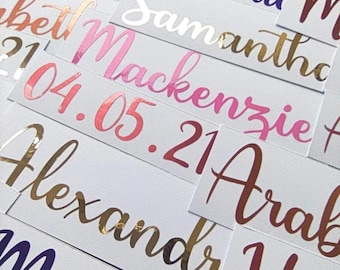 abeth
Samantha
21
Mackenzie
04.05.21
Arab
Alexandr
M